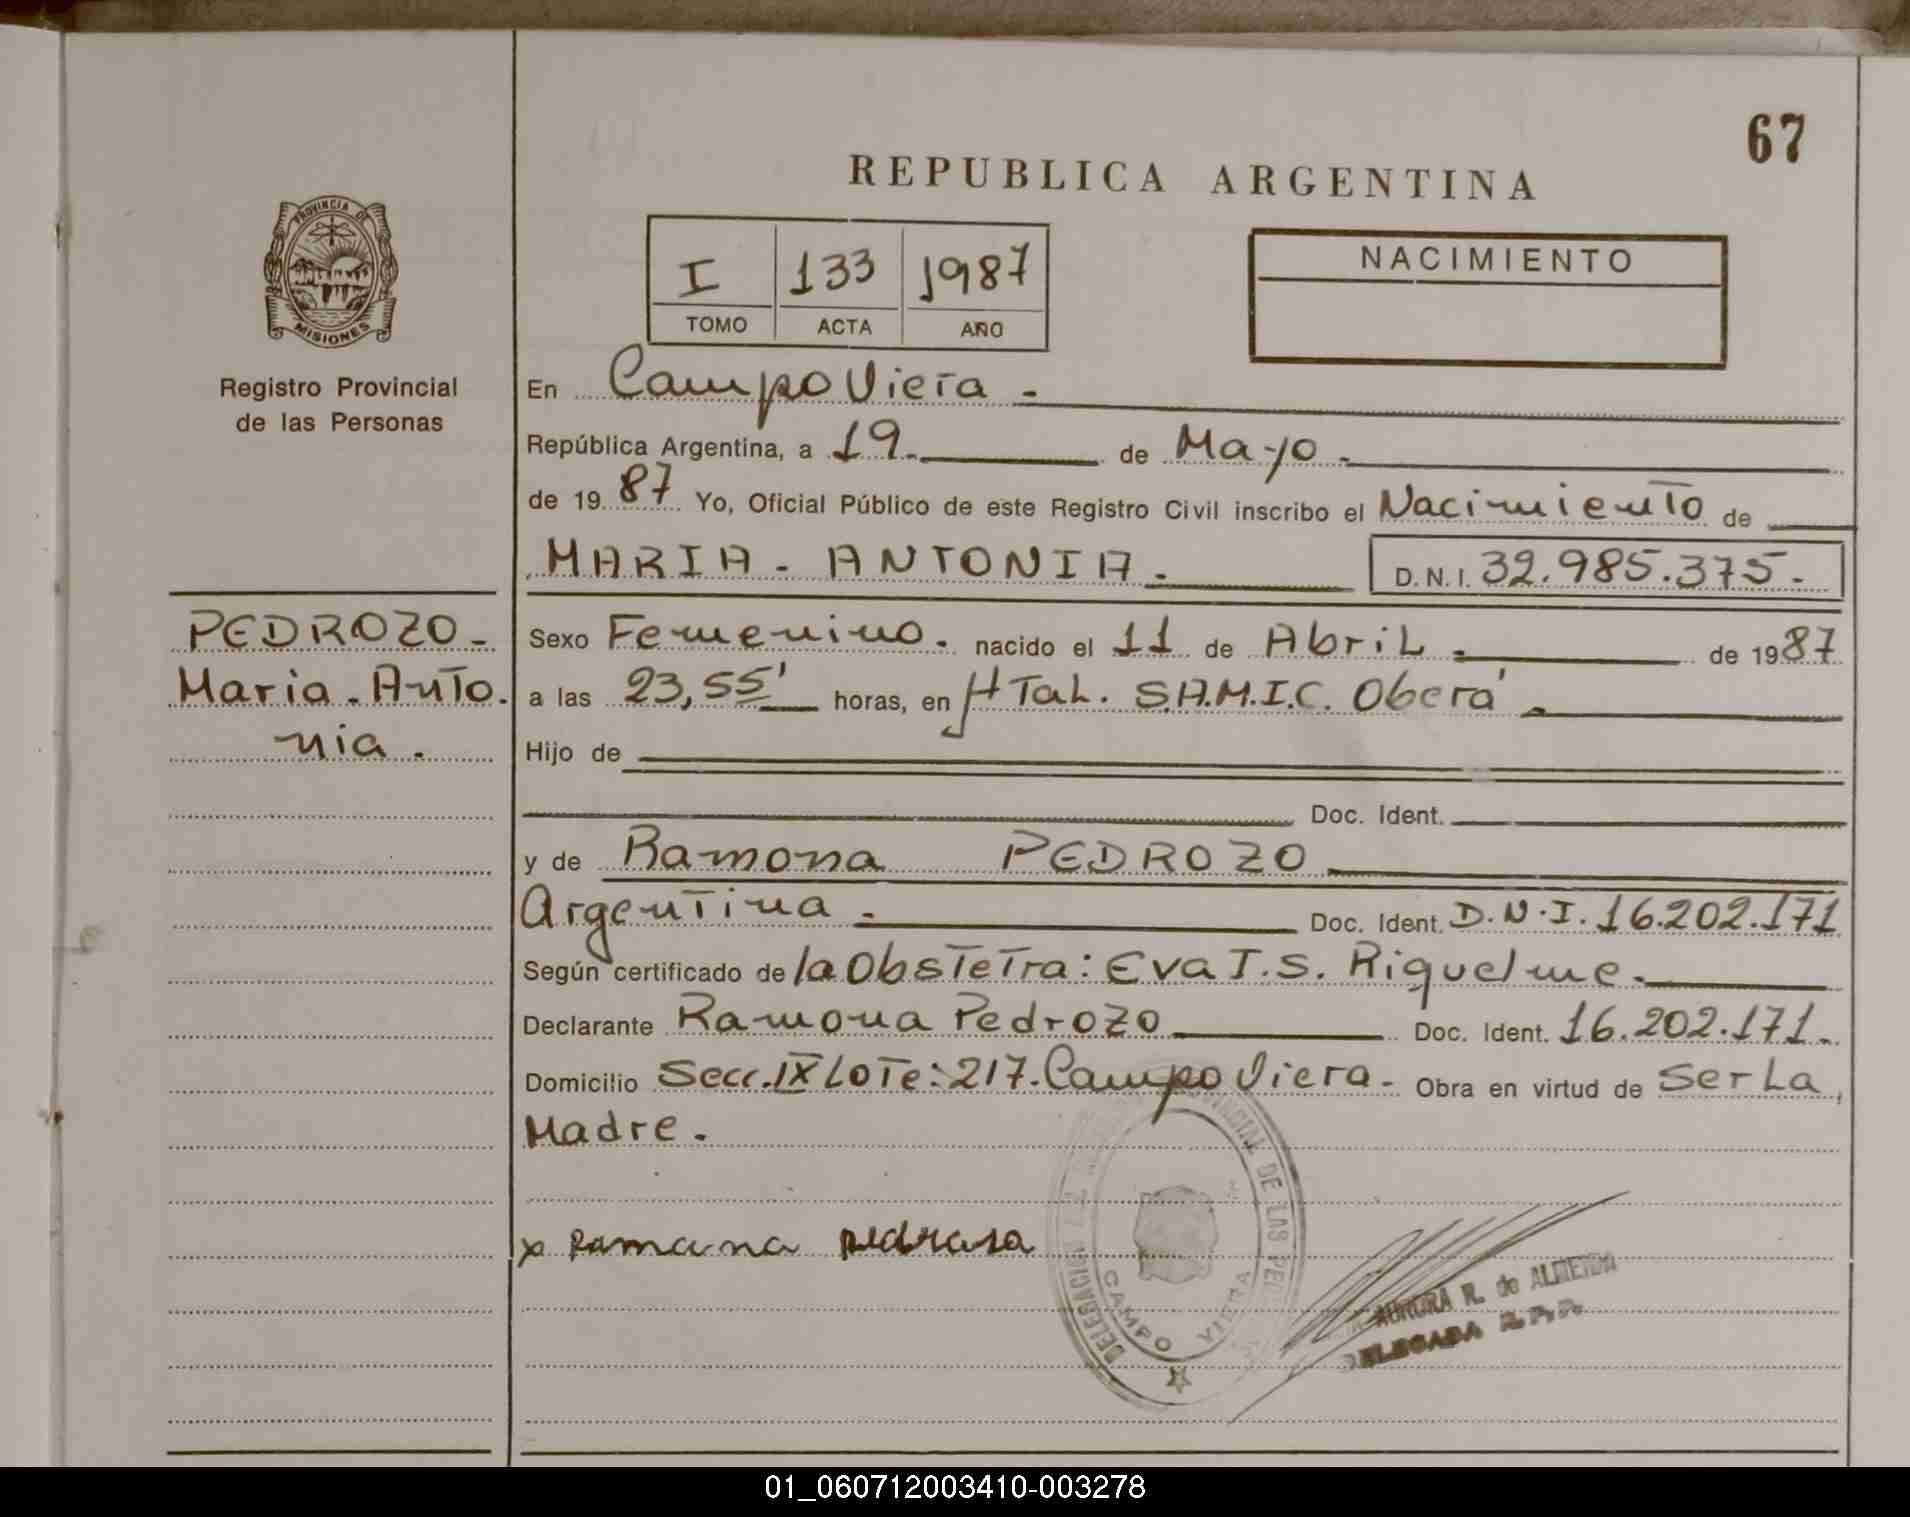 67
REPUBLICA ARGENTINA
PROVINCIA DE
MISIONES
Registro Provincial
de las Personas
I 133 1987
TOMO ACTA AÑO
NACIMIENTO
En Campo Viera -
República Argentina, a 19. de Mayo -
de 19 87 Yo, Oficial Público de este Registro Civil inscribo el Nacimiento de
MARIA - ANTONIA - D.N.I. 32.985.375.-
PEDROZO-
Maria. Anto.
nia.
Sexo Femenino. nacido el 11 de Abril. de 19 87
a las 23,55' horas, en H Tal. S.A.M.I.C. Oberá
Hijo de
Doc. Ident.
y de Ramona PEDROZO
Argentina - Doc. Ident. D.N.I. 16.202.171
Según certificado de la Obstetra: Eva I.S. Riquelme.
Declarante Ramona Pedrozo Doc. Ident. 16.202.171.-
Domicilio Secc. IX Lote: 217. Campo Viera - Obra en virtud de Ser La
Madre.
x Ramana pedrasa
DELEGACION PROVINCIAL DE LAS PE
CAMPO VIERA
AURORA R. de ALMEIDA
DELEGADA R.P.P.
01_060712003410-003278